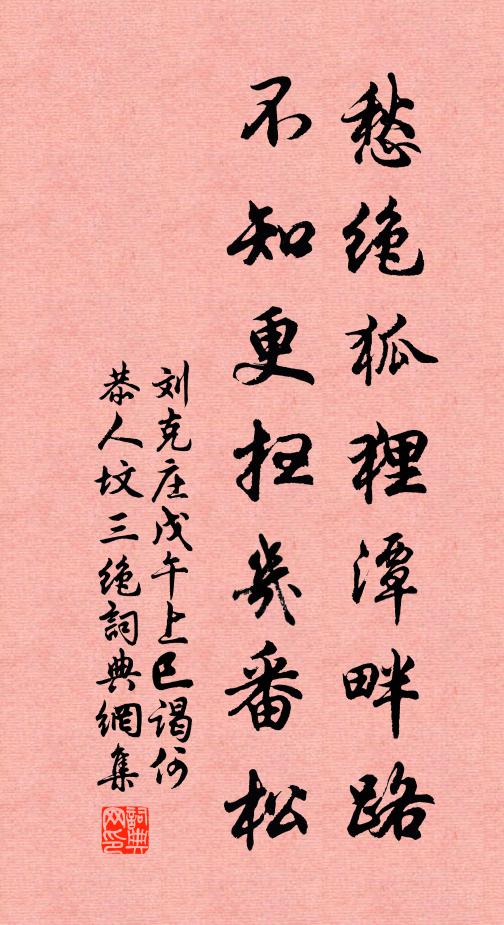 愁绝狐狸潭畔路
不知更扫几番松
刘克庄戊午上巳谒何
恭人坟三绝詞典網集
詞典网印